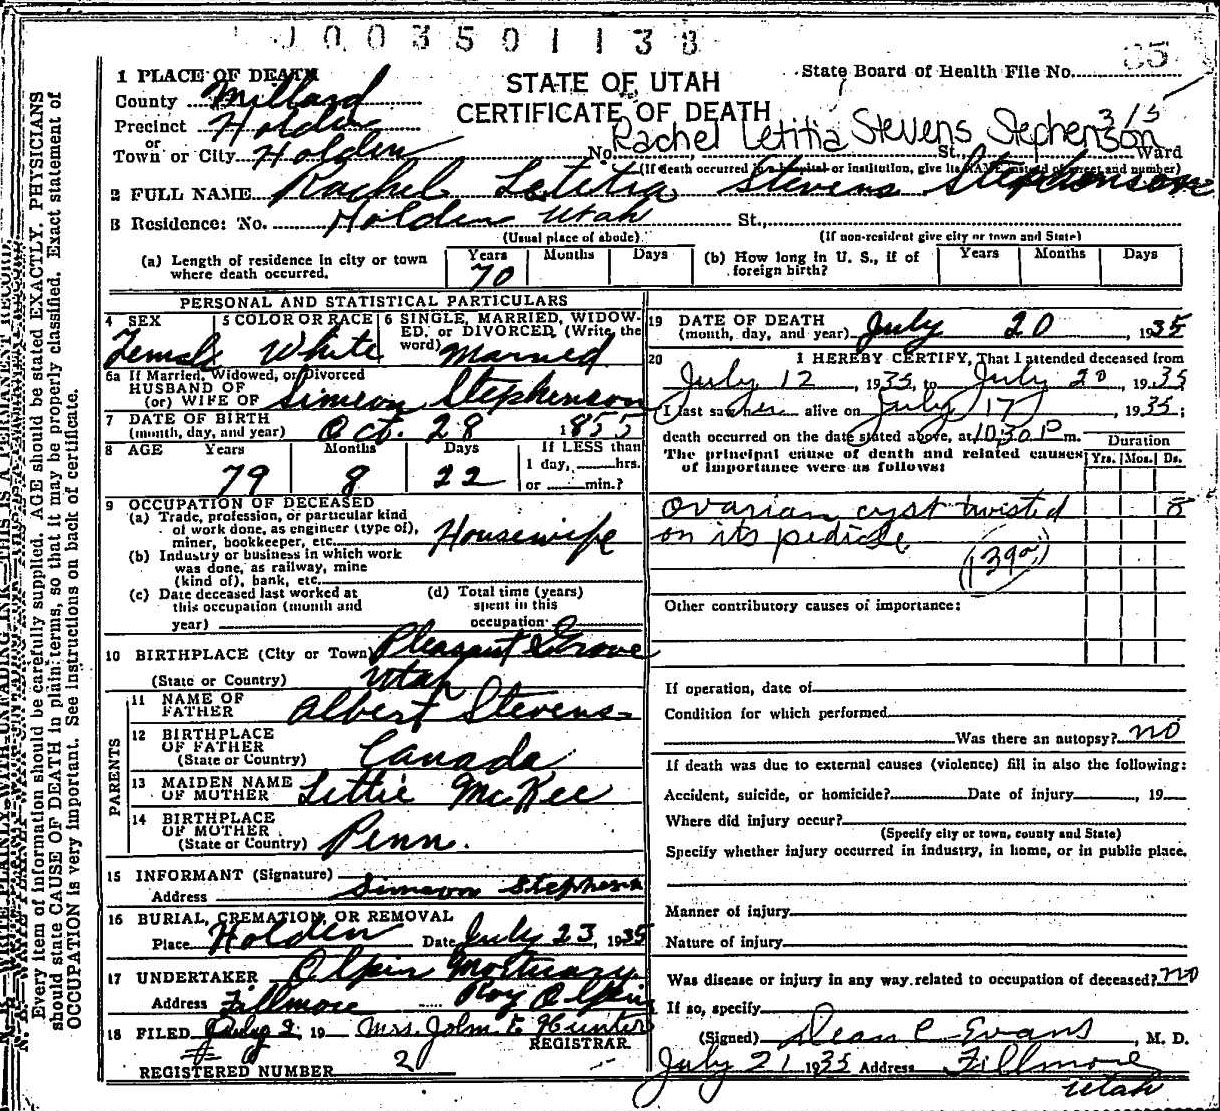 1003501138
85
1 PLACE OF DEATH
STATE OF UTAH
State Board of Health File No.
County Millard
CERTIFICATE OF DEATH
Precinct Holden
or
Town or City Holden
No. Rachel Letitia Stevens Stephenson St., 315 Ward
(If death occurred in a hospital or institution, give its NAME instead of street and number)
2 FULL NAME Rachel Letitia Stevens Stephenson
3 Residence: No. Holden Utah St.,
(Usual place of abode) (If non-resident give city or town and State)
(a) Length of residence in city or town where death occurred. Years 70 Months Days
(b) How long in U. S., if of foreign birth? Years Months Days
PERSONAL AND STATISTICAL PARTICULARS
4 SEX Female
5 COLOR OR RACE White
6 SINGLE, MARRIED, WIDOWED, or DIVORCED, (Write the word) Married
6a If Married, Widowed, or Divorced
HUSBAND OF
(or) WIFE OF Simeon Stephenson
7 DATE OF BIRTH
(month, day, and year) Oct. 28 1855
8 AGE Years 79 Months 8 Days 22
If LESS than
1 day, hrs.
or min.?
9 OCCUPATION OF DECEASED
(a) Trade, profession, or particular kind
of work done, as engineer (type of),
miner, bookkeeper, etc. Housewife
(b) Industry or business in which work
was done, as railway, mine
(kind of), bank, etc.
(c) Date deceased last worked at
this occupation (month and
year)
(d) Total time (years)
spent in this
occupation
10 BIRTHPLACE (City or Town) Pleasant Grove
(State or Country) Utah
PARENTS
11 NAME OF
FATHER Albert Stevens
12 BIRTHPLACE
OF FATHER
(State or Country) Canada
13 MAIDEN NAME
OF MOTHER Lettie McKee
14 BIRTHPLACE
OF MOTHER
(State or Country) Penn.
15 INFORMANT (Signature)
Address Simeon Stephens
16 BURIAL, CREMATION, OR REMOVAL
Place Holden Date July 23, 1935
17 UNDERTAKER Olpin Mortuary
Address Fillmore Roy Olpin
18 FILED July 2, 19 Mrs. John E Hunter
REGISTRAR
REGISTERED NUMBER 2
19 DATE OF DEATH
(month, day, and year) July 20, 1935
20 I HEREBY CERTIFY, That I attended deceased from
July 12, 1935, to July 20, 1935
I last saw her alive on July 17, 1935;
death occurred on the date stated above, at 10:30 P m.
Duration
The principal cause of death and related causes
of importance were as follows:
Yrs. Mos. Ds.
Ovarian cyst twisted 8
on its pedicle
(139a)
Other contributory causes of importance:
If operation, date of
Condition for which performed
Was there an autopsy? no
If death was due to external causes (violence) fill in also the following:
Accident, suicide, or homicide? Date of injury , 19
Where did injury occur?
(Specify city or town, county and State)
Specify whether injury occurred in industry, in home, or in public place.
Manner of injury
Nature of injury
Was disease or injury in any way related to occupation of deceased? no
If so, specify
(Signed) Dean C Evans, M. D.
July 21 1935 Address Fillmore
Utah
Every item of information should be carefully supplied. AGE should be stated EXACTLY. PHYSICIANS
should state CAUSE OF DEATH in plain terms, so that it may be properly classified. Exact statement of
OCCUPATION is very important. See instructions on back of certificate.
WRITE PLAINLY WITH UNFADING INK—THIS IS A PERMANENT RECORD